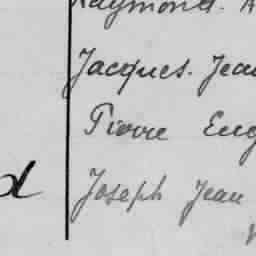 Raymond.
Jacques. Jean
Pierre Eug
d
Joseph Jean